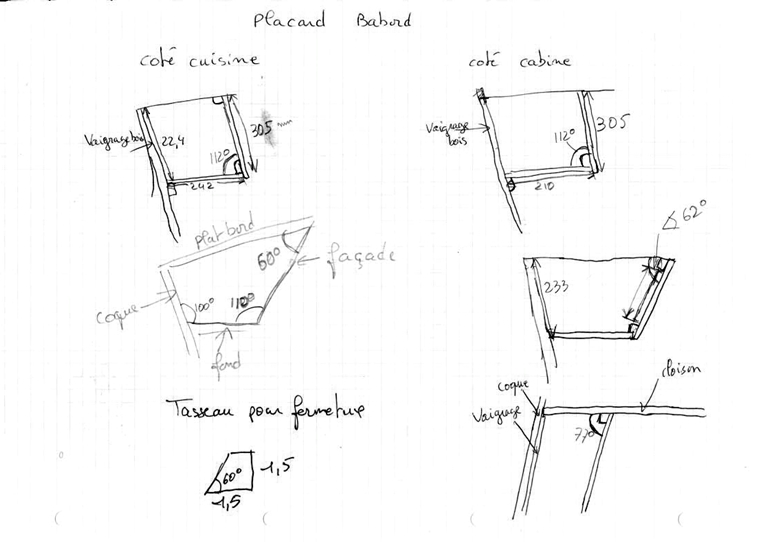 Placard Babord
coté cuisine
coté cabine
Vaigrage bois
22,4
305 mm
112°
242
Vaigrage
bois
305
112°
210
Plat bord
60°
façade
coque
100°
110°
fond
62°
233
Tasseau pour fermeture
60°
1,5
1,5
coque
Vaigrage
cloison
77°